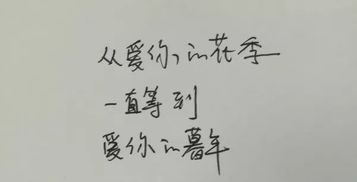 从爱你的花季
一直等到
爱你的暮年